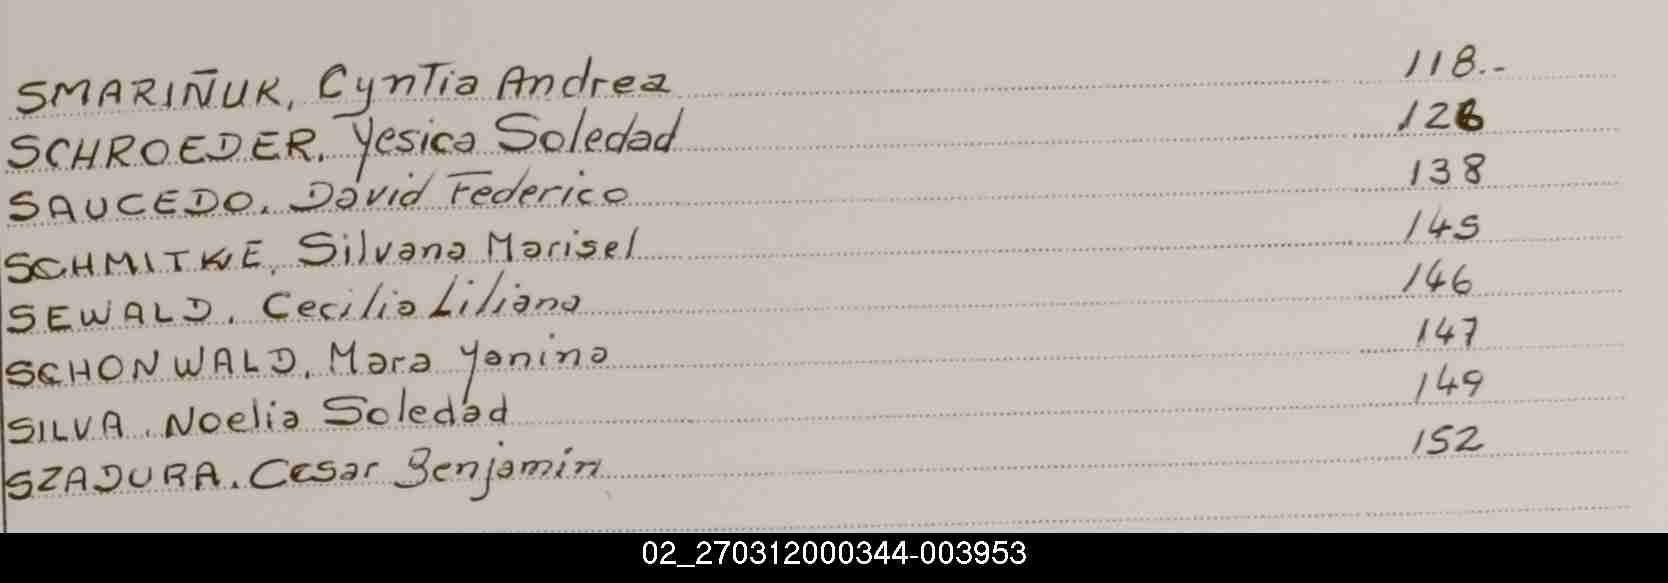 SMARIÑUK, Cyntia Andrea 118.-
SCHROEDER, Yesica Soledad 126
SAUCEDO, David Federico 138
SCHMITKE, Silvana Marisel 145
SEWALD, Cecilia Liliana 146
SCHONWALD, Mara Yanina 147
SILVA, Noelia Soledad 149
SZADURA, Cesar Benjamin 152
02_270312000344-003953